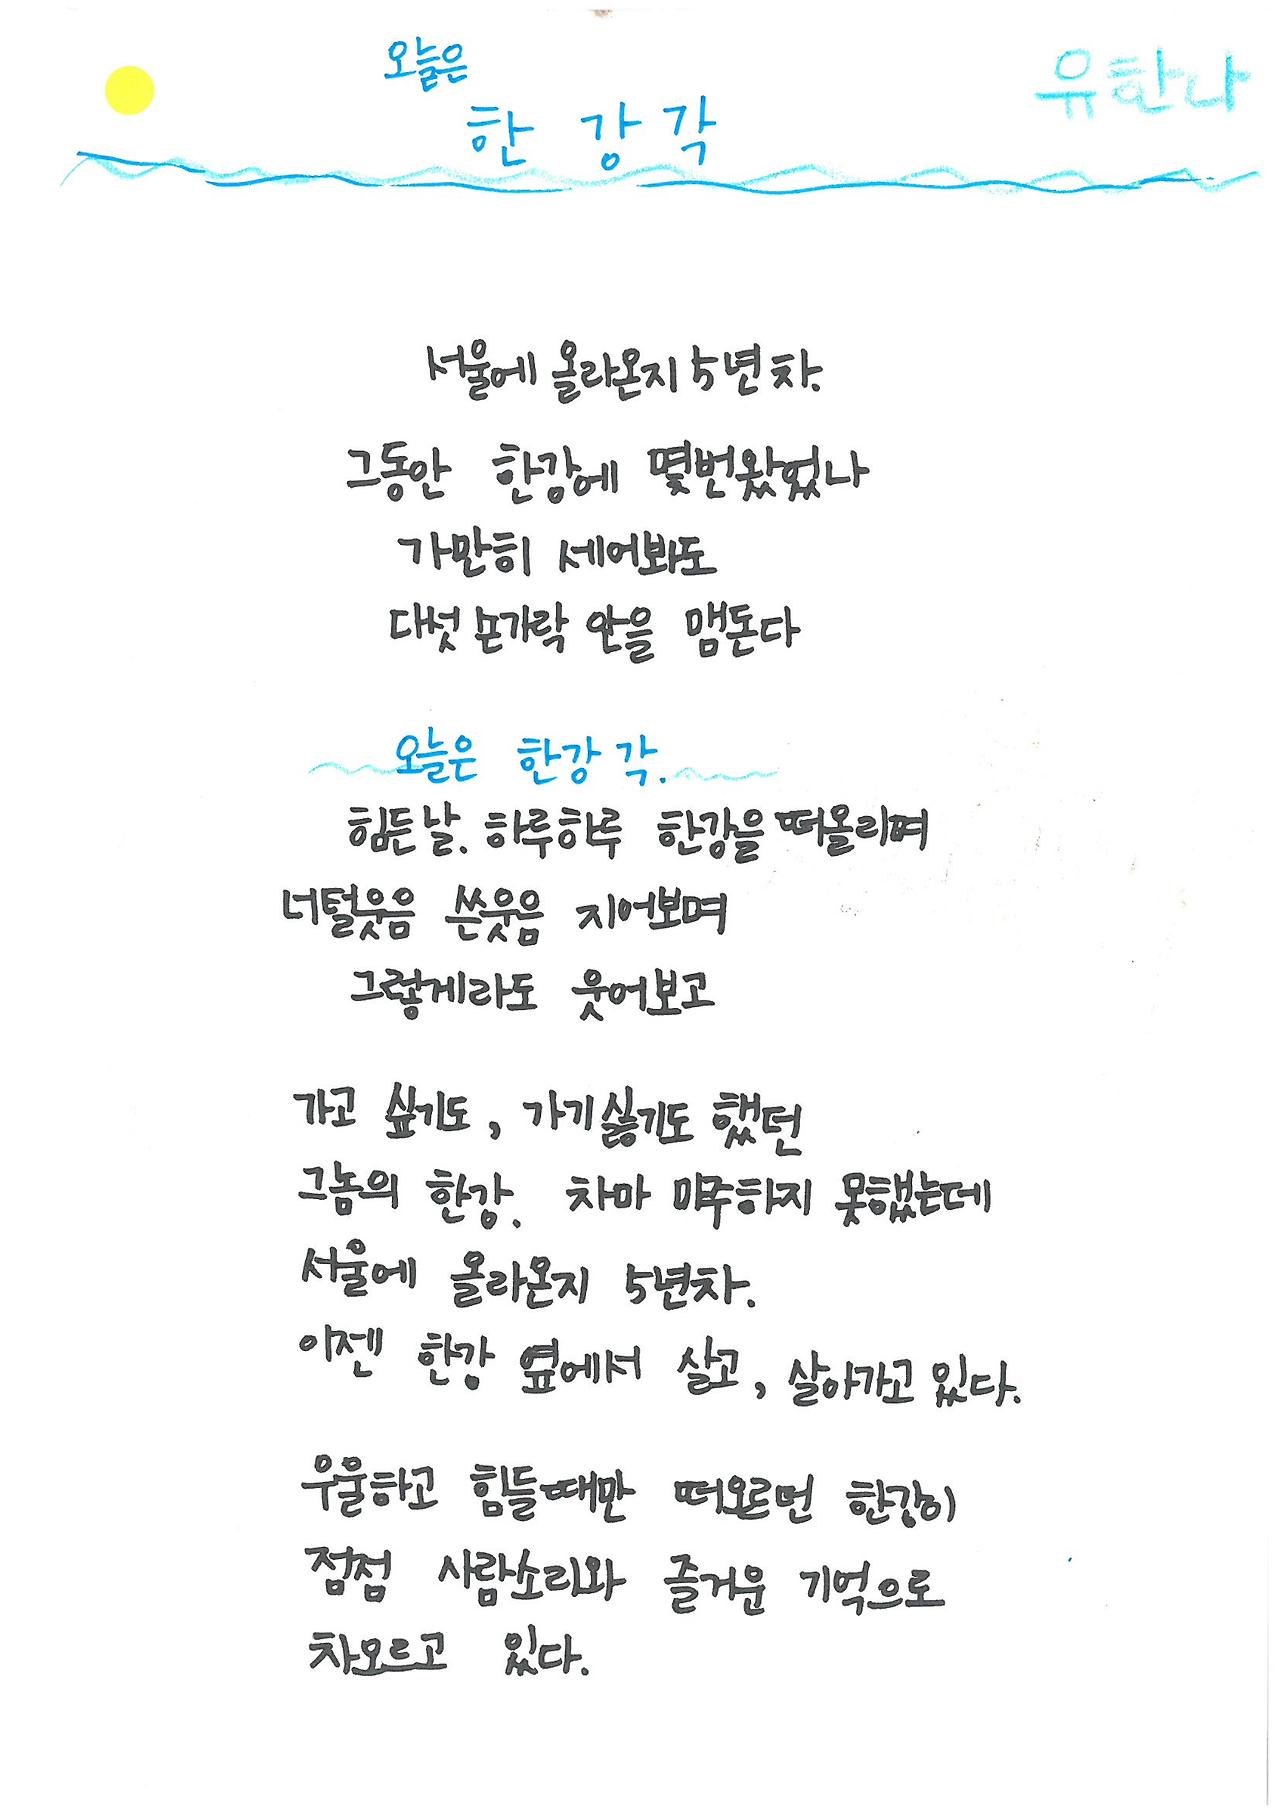 오늘은
한 강 각
유한나
서울에 올라온지 5년차.
그동안 한강에 몇번왔었나
가만히 세어봐도
다섯 손가락 안을 맴돈다
오늘은 한강 각.
힘든날. 하루하루 한강을 떠올리며
너털웃음 쓴웃음 지어보며
그렇게라도 웃어보고
가고 싶기도, 가기싫기도 했던
그놈의 한강. 차마 마주하지 못했는데
서울에 올라온지 5년차.
이젠 한강 옆에서 살고, 살아가고 있다.
우울하고 힘들때만 떠오르던 한강이
점점 사람소리와 즐거운 기억으로
차오르고 있다.